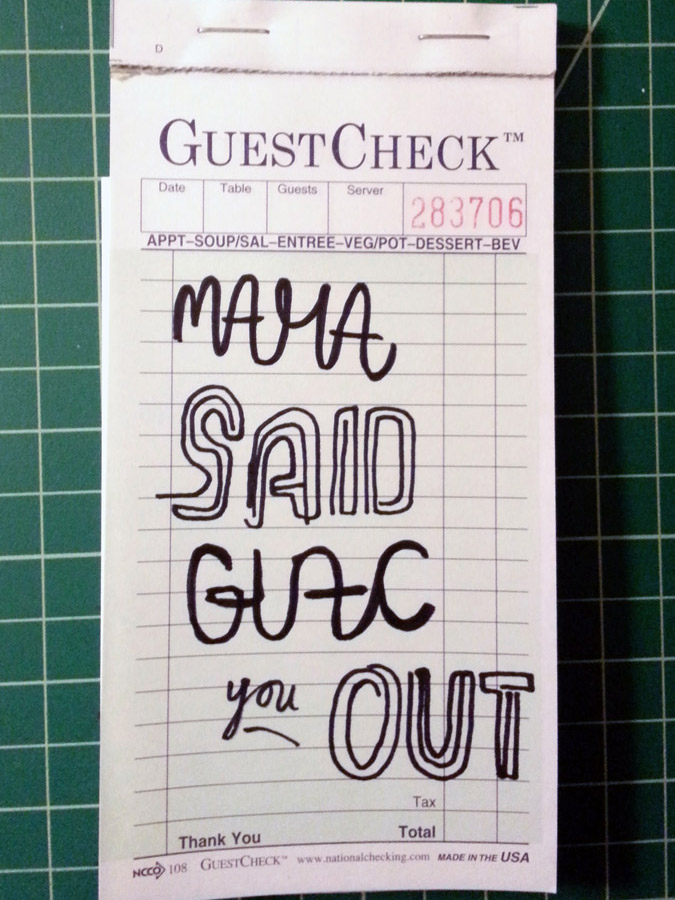 D
GUESTCHECK™
Date Table Guests Server
283706
APPT–SOUP/SAL–ENTREE–VEG/POT–DESSERT–BEV
MAMA
SAID
GUAC
you OUT
Tax
Thank You Total
NCCO 108 GUESTCHECK™ www.nationalchecking.com MADE IN THE USA